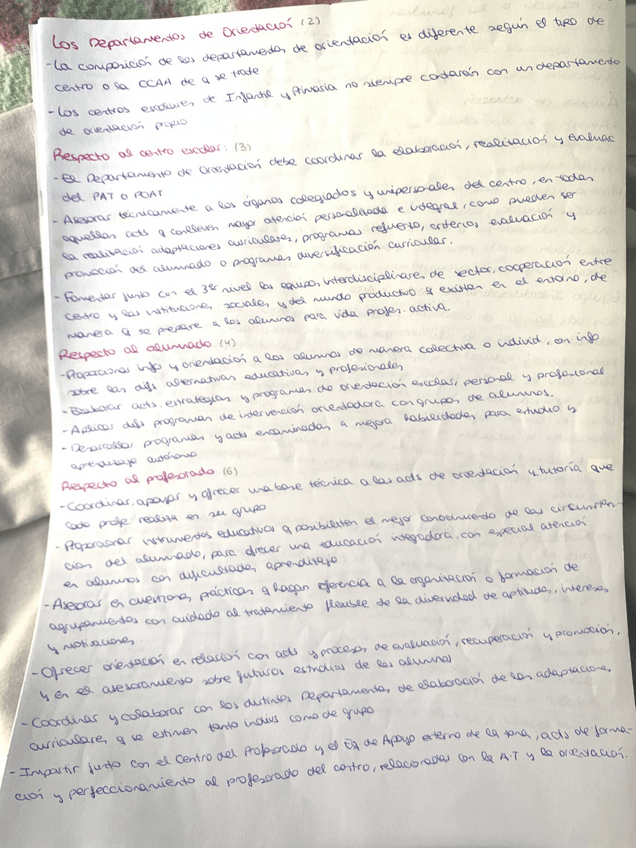 Los Departamentos de Orientación (2)
- La composición de los departamentos de orientación es diferente según el tipo de
centro o la CCAA de q se trate
- Los centros escolares de Infantil y Primaria no siempre contarán con un departamento
de orientación propio
Respecto al centro escolar: (3)
- El Departamento de Orientación debe coordinar la elaboración, realización y evaluac
del PAT o POAT
- Asesorar técnicamente a los órganos colegiados y unipersonales del centro, en todas
aquellas acts q conlleven mayor atención personalizada e integral, como pueden ser
la realización adaptaciones curriculares, programas refuerzo, criterios evaluación y
promoción del alumnado o programas diversificación curricular.
- Fomentar junto con el 3er nivel los equipos interdisciplinares de sector, cooperación entre
centro y las instituciones sociales y del mundo productivo q existan en el entorno, de
manera q se prepare a los alumnos para vida profes. activa.
Respecto al alumnado (4)
- Proporcionar info y orientación a los alumnos de manera colectiva o individ, en info
sobre las difs alternativas educativas y profesionales
- Elaborar acts, estrategias y programas de orientación escolar, personal y profesional
- Aplicar difs programas de intervención orientadora con grupos de alumnos.
- Desarrollar programas y acts encaminadas a mejora habilidades para estudio y
aprendizaje autónomo
Respecto al profesorado (6)
- Coordinar, apoyar y ofrecer una base técnica a las acts de orientación y tutoría que
cada profe realiza en su grupo
- Proporcionar instrumentos educativos q posibiliten el mejor conocimiento de las circunstan-
cias del alumnado, para ofrecer una educación integradora, con especial atención
en alumnos con dificultades aprendizaje
- Asesorar en cuestiones prácticas q hagan referencia a la organización o formación de
agrupamientos con cuidado al tratamiento flexible de la diversidad de aptitudes, intereses
y motivaciones
- Ofrecer orientación en relación con acts y procesos de evaluación, recuperación y promoción,
y en el asesoramiento sobre futuros estudios de los alumnos
- Coordinar y colaborar con los distintos Departamentos, de elaboración de las adaptaciones
curriculares q se estimen tanto indivs como de grupo
- Impartir junto con el Centro del Profesorado y el Eq de Apoyo externo de la zona, acts de forma-
ción y perfeccionamiento al profesorado del centro, relacionadas con la AT y la orientación.